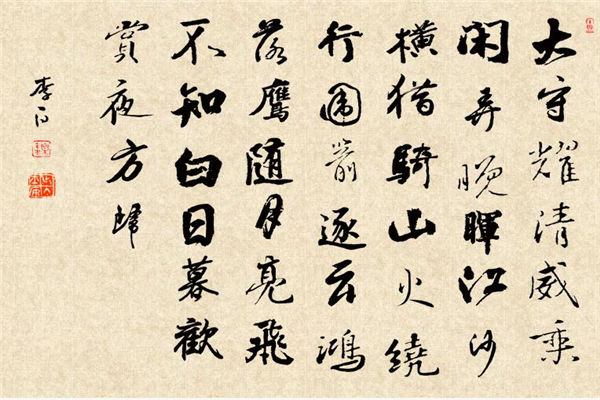 大守耀清威乘
闲弄晚暉江沙
横猎騎山火繞
行圍箭逐云鴻
落鹰随月亮飛
不知白日暮歡
賞夜方歸
李白